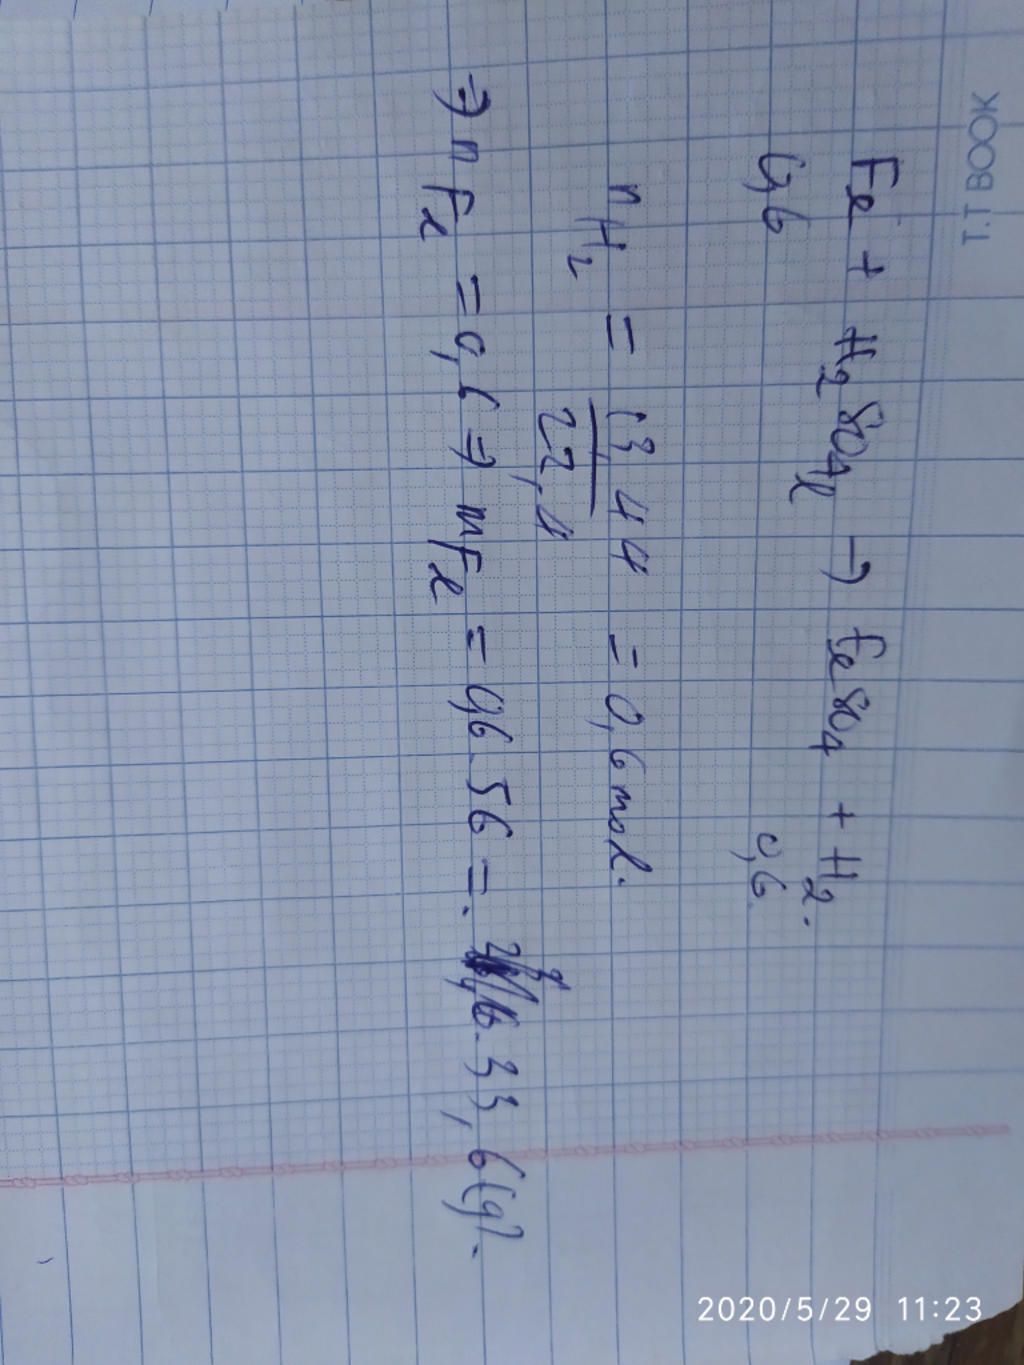 T.T BOOK
Fe + H2SO4l → FeSO4 + H2.
0,6 0,6
nH2 = 13,44 / 22,4 = 0,6 mol.
⇒ nFe = 0,6 ⇒ mFe = 0,6.56 = 33,6(g).
2020/5/29 11:23